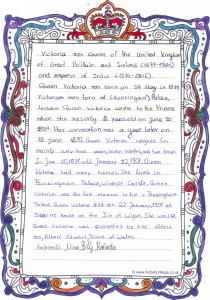 Victoria was Queen of the United Kingdom
of Great Britain and Ireland (1837-1901)
and empress of India (1876-1901).
Queen Victoria was born on 24 May in 1819
Victorian was born at (Kensington) Palace,
London. Queen Victoria came to the throne
when she was only 18 years old on June 20
1837. Her coronation was a year later on
28 June 1838. Queen Victoria reigned for
sixty three years, seven months, and two days
In June 20, 1837 until January 22, 1901. Queen
Victoria had many homes. She lived in
Buckingham Palace, Windsor Castle. Queen
Victoria was the first monarch to live in Buckingham
Palace. Queen Victoria died on 22 January, 1901 at
Osborne House on the Isle of Wight. She was 81
Queen Victoria was succeeded by her eldest
son, Albert Edward, Prince of Wales.
© www.ActivityVillage.co.uk